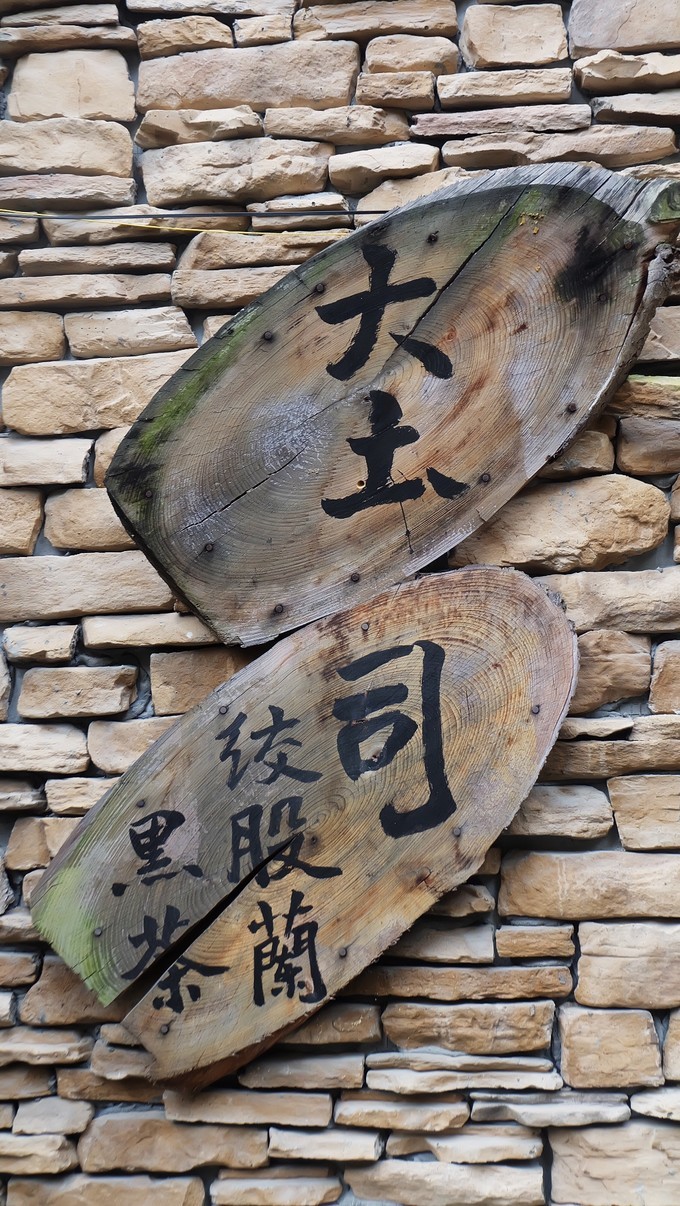 大土司
绞股蘭
黑茶